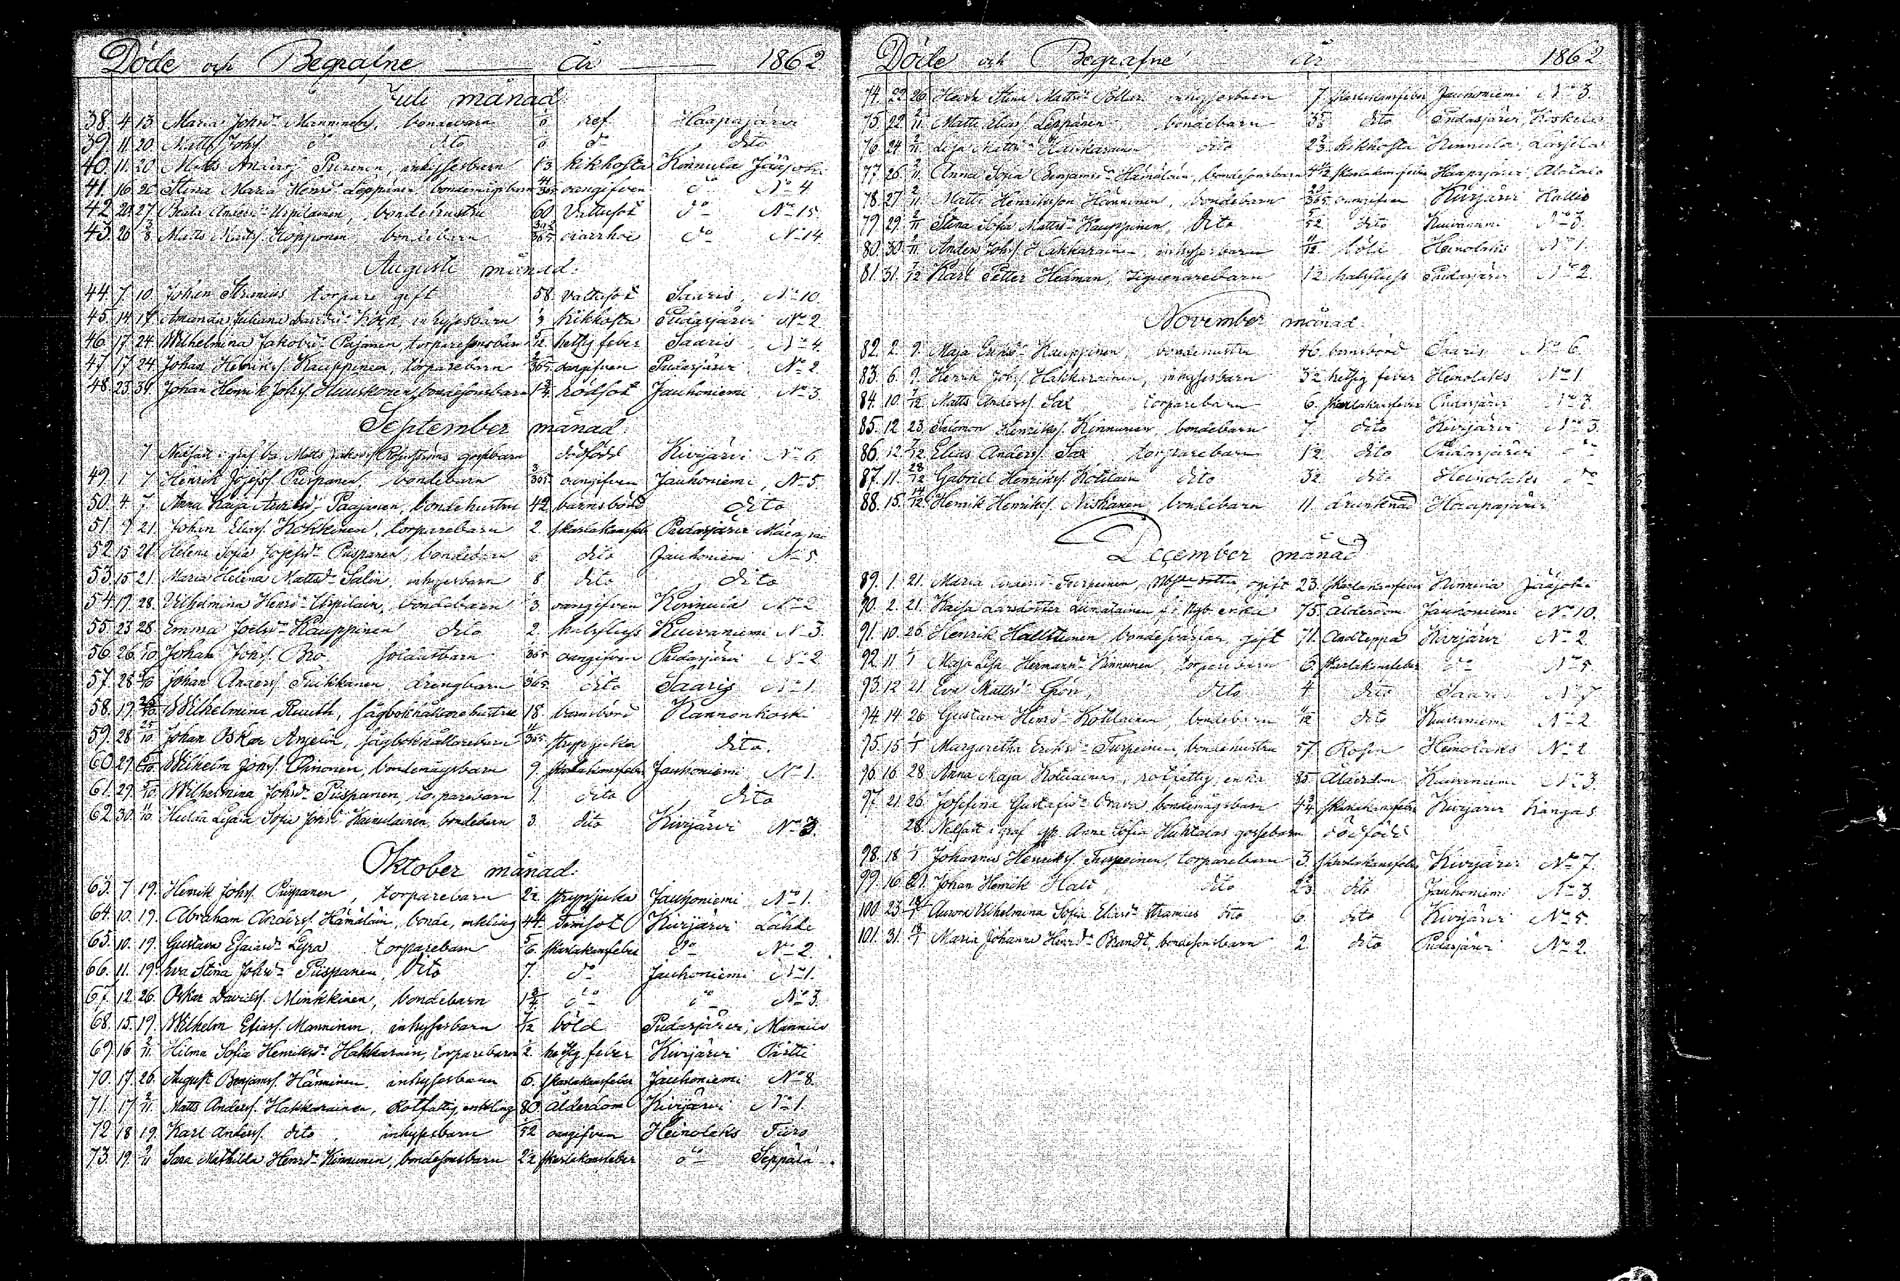 Döde och Begrafne år 1862
Juli månad
38. 4 13 Maria Johsd. Manninen, bondebarn ref Haapajärvi
39 11 20 Matts Johss. do dito do dito
40. 11. 20 Matts Anderss. Piirinen, inhysesbarn 13 kikhosta Kinnula Jääjoki
41. 16 20 Stina Maria Henrsd. Leppänen, bondemågsbarn oangifven do No 4
42 20 27 Beata Andersd. Urpilainen, bondehustru 60 Vattusot do No 15.
43. 26 3/8 Matts Mattss. Kopponen bondebarn diarrhoe do No 14
Augusti månad.
44. 7. 10. Johan Stranius torpare gift 58. Vattusot Saaris, No 10.
45. 14 17 Amanda Juliana Davidsd. inhysesbarn kikhosta Pudasjärvi No 2
46. 17. 24. Wilhelmina Jakobsd. Paajanen, torparesonsbarn hettig feber Saaris No 4.
47. 17 24. Johan Henrikss. Kauppinen, torparebarn oangifven Pudasjärvi No 2.
48. 23. 31. Johan Henrik Johss. Hauskonen, bondesonsbarn 1 3/4 rödsot Jauhoniemi No 3.
September månad
7 Nelfatt i graf. Matts Jakobss. gossebarn dödfödd Kivijärvi No 6
49. 1 7 Henrik Josefss. Puspanen, bondebarn 3/365 oangifven Jauhoniemi, No 5
50. 4. 7. Anna Kaisa Andersd. Paajanen, bondehustru 42 barnsbörd dito
51. 9 21. Johan Eliass. Kokkinen, torparebarn 2. skarlakansfeb Pudasjärvi
52 15 21 Helena Sofia Josefsd. Puspanen, bondebarn 6 dito Jauhoniemi No 5
53. 15 21. Maria Helena Mattsd. Salin, inhysesbarn 8. dito dito
54. 19. 28. Vilhelmina Henrsd. Urpilain, bondebarn 3. oangifven Kinnula No 2
55. 23 28. Emma Joelsd. Kauppinen dito 2. halsfluss Kuivaniemi No 3.
56. 26. 5/10 Johan Johss. Bro soldatbarn 365 oangifven Pudasjärvi No 2
57. 28 5/10 Johan Anderss. Pukkanen, drängbarn 365. dito Saaris No 1.
58. 19. Wilhelmina Ruuth, sågbokhållarehustru 18 barnsbörd Kannonkoski
59. 28 Johan Oskar sågbokhållarebarn 365. strypsjuka dito.
60. 29. Wilhelm Johss. Oinonen, bondemågsbarn 9. skarlakansfeber Jauhoniemi No 1.
61. 29. Wilhelmina Johsd. Puspanen, torparebarn 1. dito dito
62 30. Hulda Sofia Johsd. Kainulainen, bondebarn 3. dito Kivijärvi No 3.
Oktober månad.
63. 7 19. Henrik Johss. Puspanen, torparebarn 2 1/2 strypsjuka Jauhoniemi No 1.
64. 10. 19. Abraham Anderss. Hämäläin, bonde, enkling 44. Kivijärvi Lähde
65. 10. 19. Gustava Esaiasd. Leyra torparebarn 5/6. skarlakansfeber do No 2.
66. 11. 19. Eva Stina Johsd. Puspanen, Dito 7. do Jauhoniemi No 1.
67. 12. 26. Oskar Davidss. Minkkinen, bondebarn 1 3/4 do do No 3.
68. 15. 19. Wilhelm Eliass. Manninen, inhysesbarn 7/12 böld Pudasjärvi, Mannila
69. 16 2/11. Hilma Sofia Henriksd. Hakkarain, torparebarn 1/2. hettig feber Kivijärvi Pärtti
70. 17. 26. August Benjamss. Hänninen, inhysesbarn 6. skarlakansfeber Jauhoniemi No 8.
71. 17 2/11. Matts Anderss. Hakkarainen, Rotfattig, enkling 80 ålderdom Kivijärvi No 1.
72 18 19. Karl Anderss. dito, inhysesbarn 1/52 oangifven Heinolaks Turo
73. 19. 2/11 Sara Mathilda Henrsd. Kinnunen, bondesonsbarn 2 1/2 skarlakansfeber do Seppälä
Döde och Begrafne år 1862
74. 22 26 Hedda Stina Mattsd. inhysesbarn 7. skarlakansfeber Jauhoniemi No 3.
75. 22 2/11 Matti Eliass. Leppänen, bondebarn dito Pudasjärvi, Koskela
76. 24 2/11 Lisa Mattsd. Haukarainen dito 2 3/4. kikhosta Kinnula, Lassila
77. 26. 2/11 Anna Sofia Benjamsd. Hämäläin, bondesonsbarn skarlakansfeber Haapajärvi Alatalo
78. 27 2/11 Matti Henriksson Hänninen, bondebarn 22/365 oangifven Kivijärvi Kallio
79. 29. 2/11 Stina Sofia Mattsd. Kauppinen, Dito 5/52 dito Kuivaniemi No 3.
80. 30. Anders Johss. Hakkarainen inhysesbarn böld Heinolaks No 1.
81. 31. Karl Petter Hedman, zigenarebarn 12 halsfluss Pudasjärvi No 2.
November månad.
82. 2. 9. Maja Eriksd. Kauppinen, bondehustru 46. barnsbörd Saaris No 6.
83. 6. 9. Henrik Johss. Hakkarainen, inhysesbarn 3 1/2 hettig feber Heinolaks No 1.
84. 10 Matts Anderss. Sax torparebarn 6. skarlakansfeber Pudasjärvi No 2.
85. 12 23. Salomon Henrikss. Kinnunen bondebarn 7. dito Kivijärvi No 3.
86. 12 Elias Anderss. Sax torparebarn 1 1/2 dito Pudasjärvi do
87. 11. Gabriel Henrikss. Kotilain dito 3 1/2 dito Heinolaks do
88. 15. Henrik Henrikss. Niskanen bondebarn 11. drunknad Haapajärvi
December månad
89. 1. 21. Maria Andersd. Turpeinen, ogift 23. skarlakansfeber Kinnula Jääjoki
90. 2. 21. Kaisa Larsdotter Liimatainen enka 75. ålderdom Jauhoniemi No 10.
91. 10. 26. Henrik Halttunen bondesvärfar, gift 71. Andtäppa Kivijärvi No 2
92. 11 Maja Lisa Hermansd. Kinnunen, torparebarn 6. skarlakansfeber do No 5.
93. 12 21 Eva Mattsd. Grön, dito 4 dito Saaris No 7
94. 14 26 Gustava Henrsd. Kotilainen bondebarn dito Kuivaniemi No 2
95. 15 Margaretha Eriksd. Turpeinen, bondehustru 57. Rosen Heinolaks No 2
96. 16 28 Anna Maja Kotilainen, rotfattig, enka 85 ålderdom Kuivaniemi No 3.
97. 21 26. Josefina Gustafsd. Orava, bondemågsbarn 4 3/4. skarlakansfeber Kivijärvi Kangas.
28. Nelfatt i graf. Anna Sofia Huhtalas gossebarn dödfödt
98. 18 Johannes Henrikss. Turpeinen, torparebarn 3. skarlakansfeber Kivijärvi No 7.
99. 16 21. Johan Henrik dito dito Jauhoniemi No 3.
100 23 Aurora Wilhelmina Sofia Eliasd. Stranius dito 6. dito Kivijärvi No 5.
101. 31. Maria Johanna Henrsd. Brandt, bondesonsbarn 2 dito Pudasjärvi No 2.